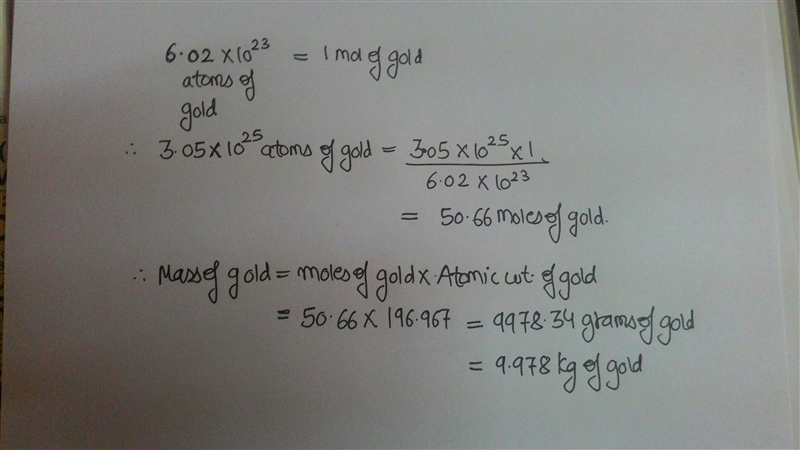 6.02 X 10²³ = 1 mol of gold
atoms of
gold
∴ 3.05 X 10²⁵ atoms of gold = 3.05 X 10²⁵ X 1
6.02 X 10²³
= 50.66 moles of gold.
∴ Mass of gold = moles of gold x Atomic wt. of gold
= 50.66 X 196.967 = 9978.34 grams of gold
= 9.978 kg of gold